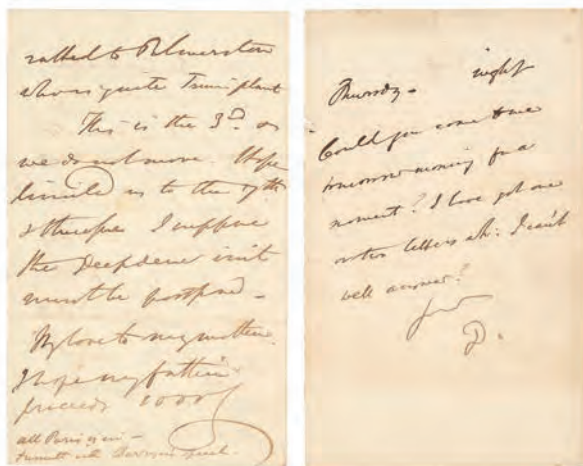 rallied to Palmerston
who is quite Triumphant
This is the 3d. &
we do not move. Hope
limits us to the 17th
& therefore I suppose
the Deepdene visit
must be postpond –
My love to my mother.
I hope my father
proceeds
all Paris is in –
Thursday – night
Could you come to me
tomorrow morning for a
moment? I have got one
or two letters wh: I can't
well answer?
D.